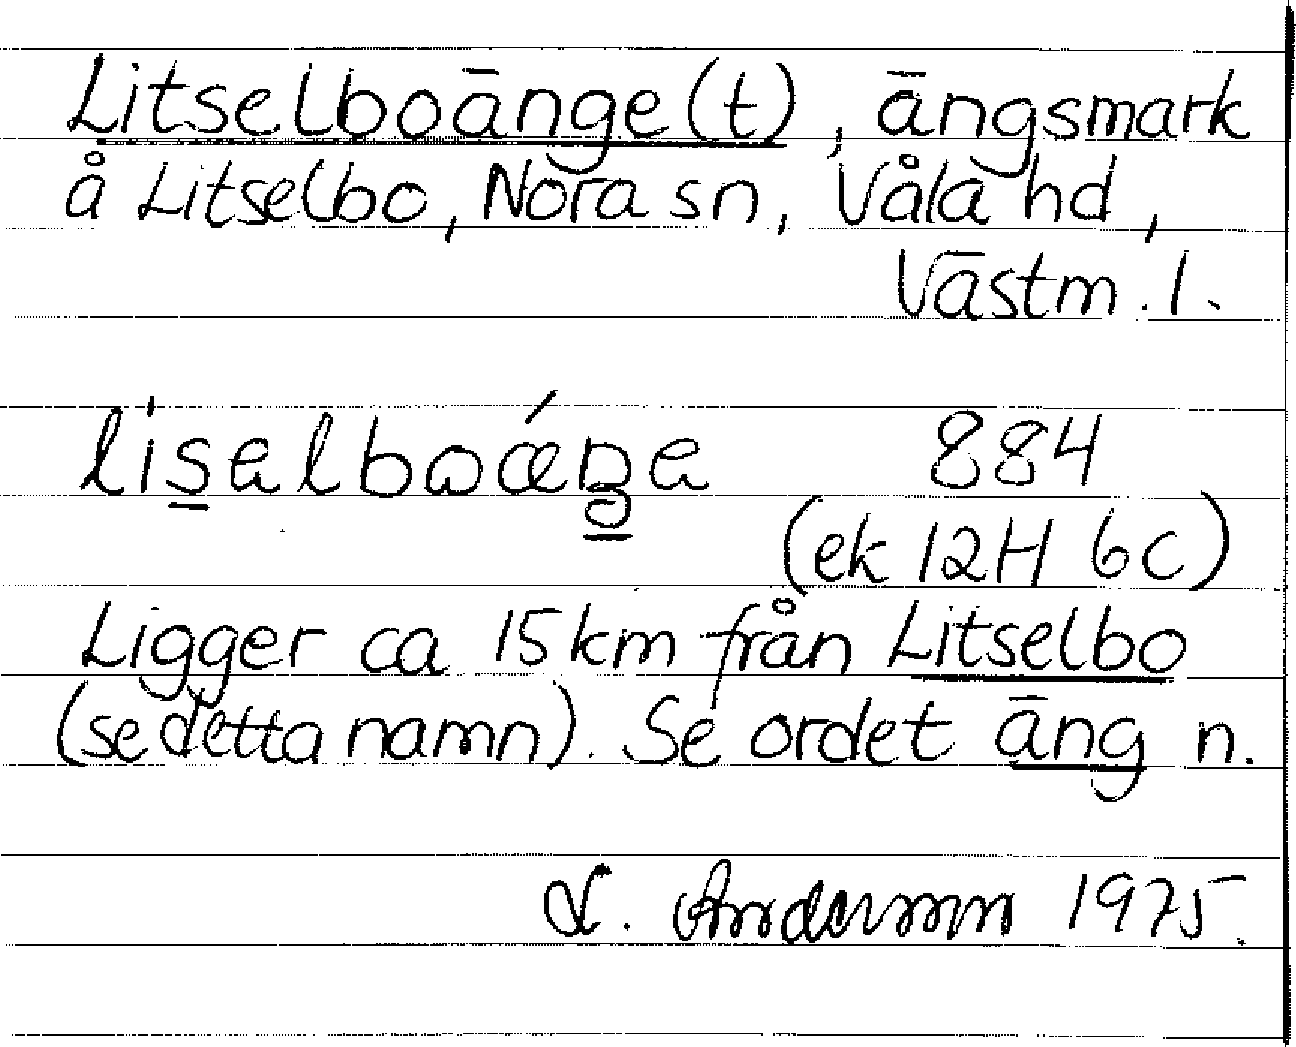 Litselboänge(t), ängsmark
å Litselbo, Nora sn, Våla hd,
Västm. l.
lisalboǽŋa 884
(ek 12H 6c)
Ligger ca 15 km från Litselbo
(se detta namn). Se ordet äng n.
L. Andersson 1975.